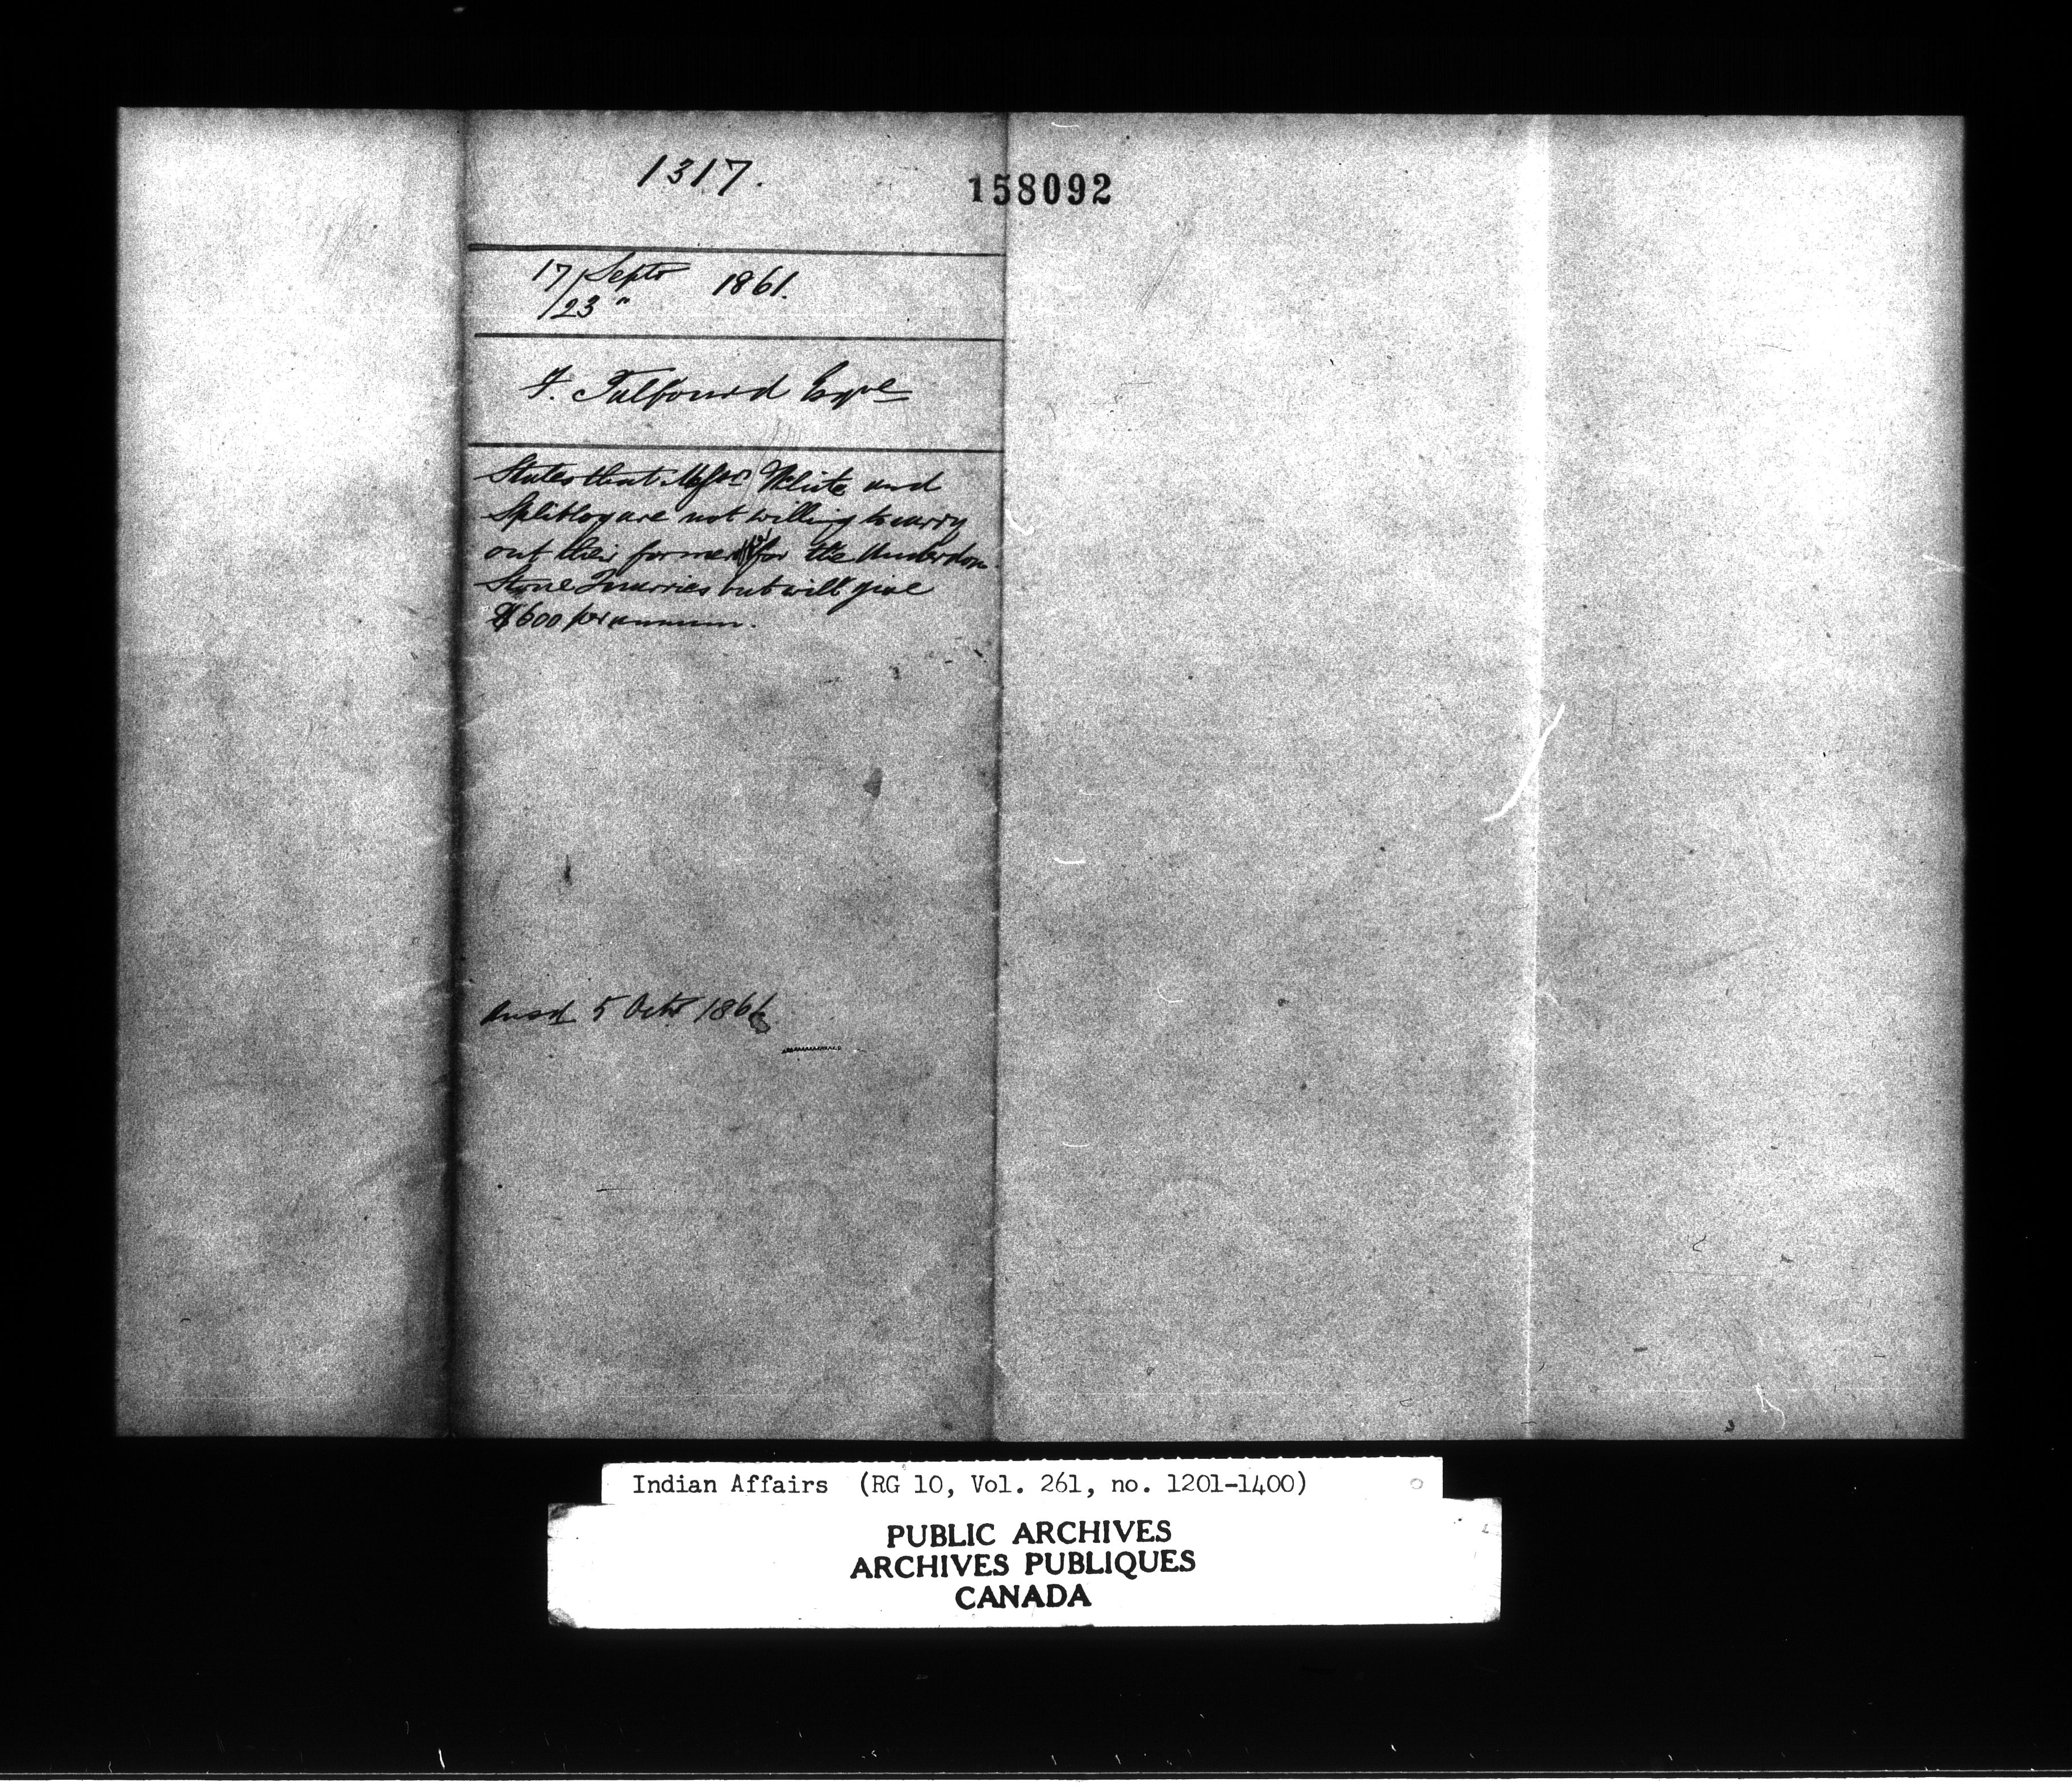 1317.
158092
17/Septr 1861.
/23 "
F. Talfourd Esqre
States that Messrs White and
Splitlog are not willing to carry
out their former for the Anderdon
Stone Quarries but will give
$600 per annum.
Ansd 5 Octr 1861
Indian Affairs (RG 10, Vol. 261, no. 1201-1400)
PUBLIC ARCHIVES
ARCHIVES PUBLIQUES
CANADA